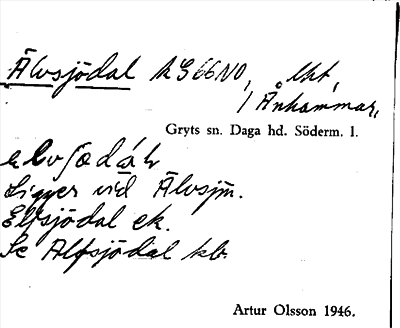 Älvsjödal k G66NO, lht,
/ Ånhammar,
Gryts sn. Daga hd. Söderm. l.
Ligger vid Älvsjön.
Elfsjödal ek.
Se Alfsjödal kb
Artur Olsson 1946.